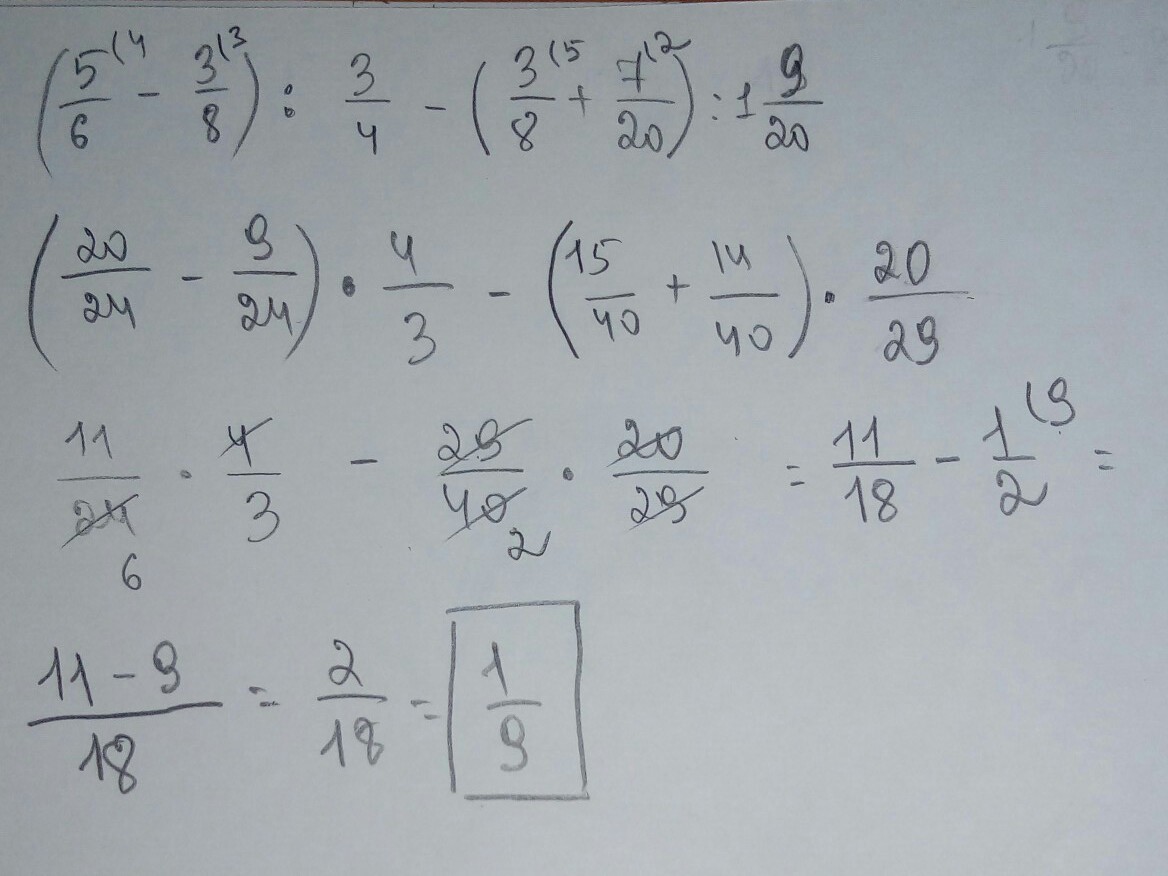 (5/6 (4 - 3/8 (3) : 3/4 - (3/8 (5 + 7/20 (2) : 1 9/20
(20/24 - 9/24) · 4/3 - (15/40 + 14/40) · 20/29
11/24 6 · 4/3 - 29/40 2 · 20/29 = 11/18 - 1/2 (9 =
11-9/18 = 2/18 = 1/9